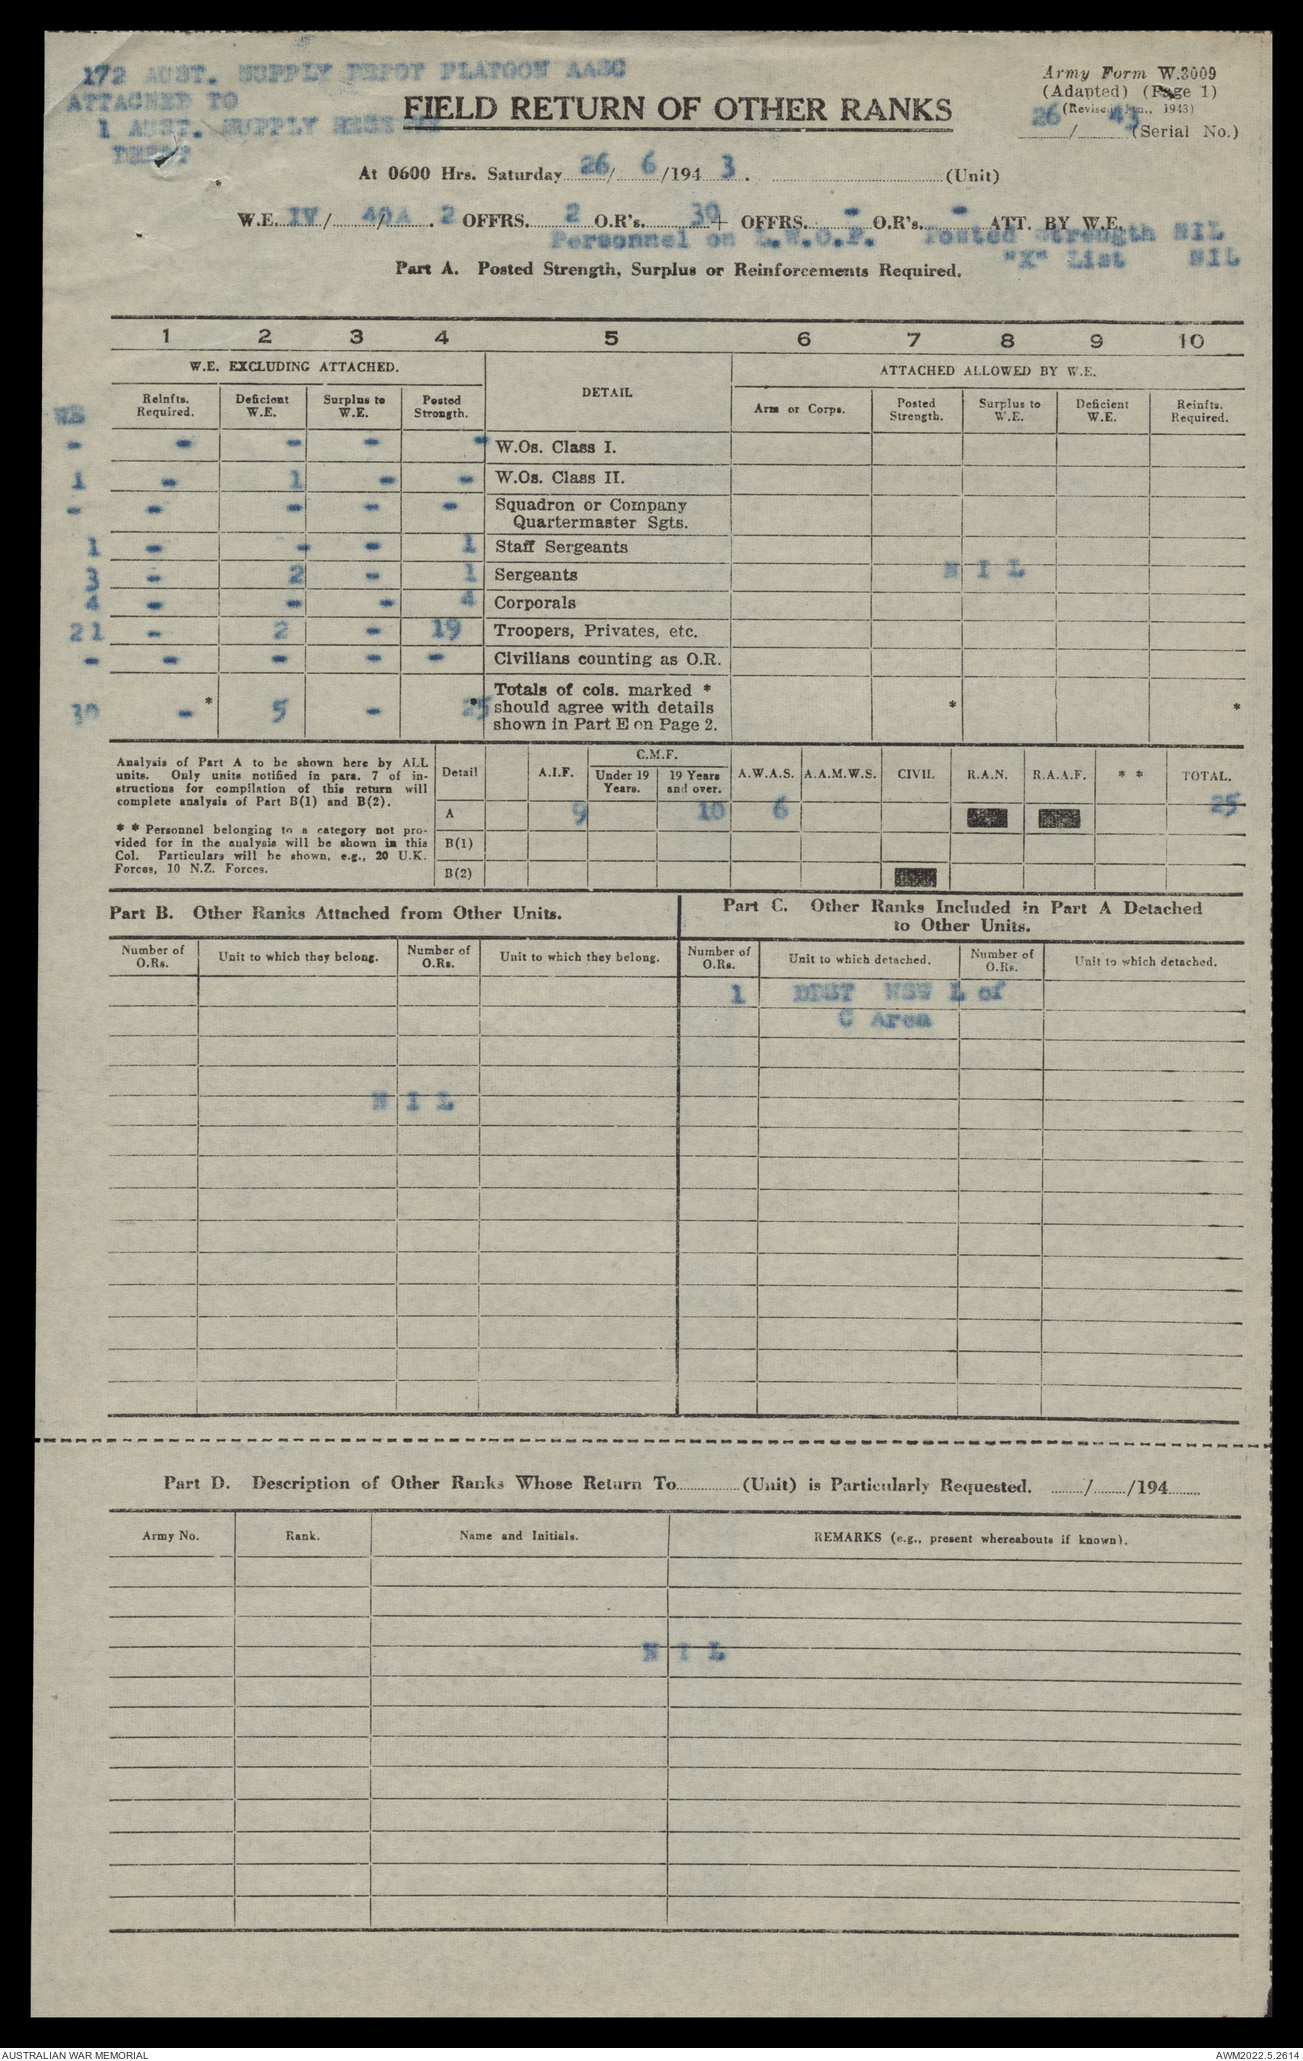 172 AUST. SUPPLY DEPOT PLATOON AASC
ATTACHED TO
1 AUST. SUPPLY RESERVE
DEPOT
Army Form W.3009
(Adapted) (Page 1)
(Revised Jan., 1943)
26/43 (Serial No.)
FIELD RETURN OF OTHER RANKS
At 0600 Hrs. Saturday 26/6/1943. (Unit)
W.E. IV/40A/. 2 OFFRS. 2 O.R's. 30 + OFFRS. - O.R's. - ATT. BY W.E.
Personnel on L.W.O.P. Posted Strength NIL
"X" List NIL
Part A. Posted Strength, Surplus or Reinforcements Required.
1 2 3 4 5 6 7 8 9 10
W.E. EXCLUDING ATTACHED. DETAIL ATTACHED ALLOWED BY W.E.
WE Reinfts. Required. Deficient W.E. Surplus to W.E. Posted Strength. Arm or Corps. Posted Strength. Surplus to W.E. Deficient W.E. Reinfts. Required.
- - - - - W.Os. Class I.
1 - 1 - - W.Os. Class II.
- - - - - Squadron or Company Quartermaster Sgts.
1 - - - 1 Staff Sergeants
3 - 2 - 1 Sergeants NIL
4 - - - 4 Corporals
21 - 2 - 19 Troopers, Privates, etc.
- - - - - Civilians counting as O.R.
30 - * 5 - 25 * Totals of cols. marked * should agree with details shown in Part E on Page 2. * *
Analysis of Part A to be shown here by ALL
units. Only units notified in para. 7 of in-
structions for compilation of this return will
complete analysis of Part B(1) and B(2).
* * Personnel belonging to a category not pro-
vided for in the analysis will be shown in this
Col. Particulars will be shown, e.g., 20 U.K.
Forces, 10 N.Z. Forces.
Detail A.I.F. C.M.F. Under 19 Years. 19 Years and over. A.W.A.S. A.A.M.W.S. CIVIL R.A.N. R.A.A.F. * * TOTAL.
A 9 10 6 25
B(1)
B(2)
Part B. Other Ranks Attached from Other Units.
Number of O.Rs. Unit to which they belong. Number of O.Rs. Unit to which they belong.
NIL
Part C. Other Ranks Included in Part A Detached
to Other Units.
Number of O.Rs. Unit to which detached. Number of O.Rs. Unit to which detached.
1 DDST NSW L of
C Area
Part D. Description of Other Ranks Whose Return To (Unit) is Particularly Requested. / /194
Army No. Rank. Name and Initials. REMARKS (e.g., present whereabouts if known).
NIL
AUSTRALIAN WAR MEMORIAL
AWM2022.5.2614